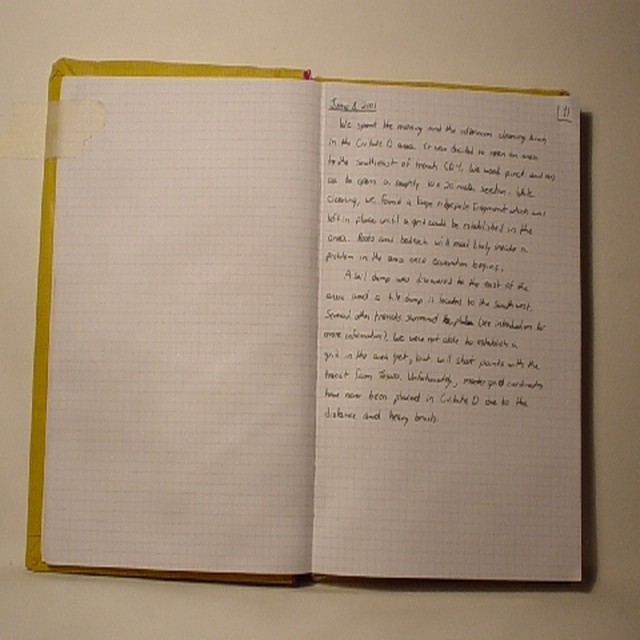 June 8, 2001
11
We spent the morning and the afternoon cleaning brush
in the Civitate D area. It was decided to open an area
to the southeast of trench CD4. We used pins and
as to open a roughly 10 x 20 meter section. While
cleaning, we found a large ridgepole fragment which was
left in place until a grid could be established in the
area. Roots and bedrock will most likely provide a
problem in the area once excavation begins.
A soil dump was discovered to the east of the
area and a tile dump is located to the southwest.
Several other trenches surround the (see introduction for
more information). We were not able to establish a
grid in the area yet, but will shoot points with the
transit from Tesoro. Unfortunately, master grid coordinates
have never been placed in Civitate D due to the
distance and heavy brush.